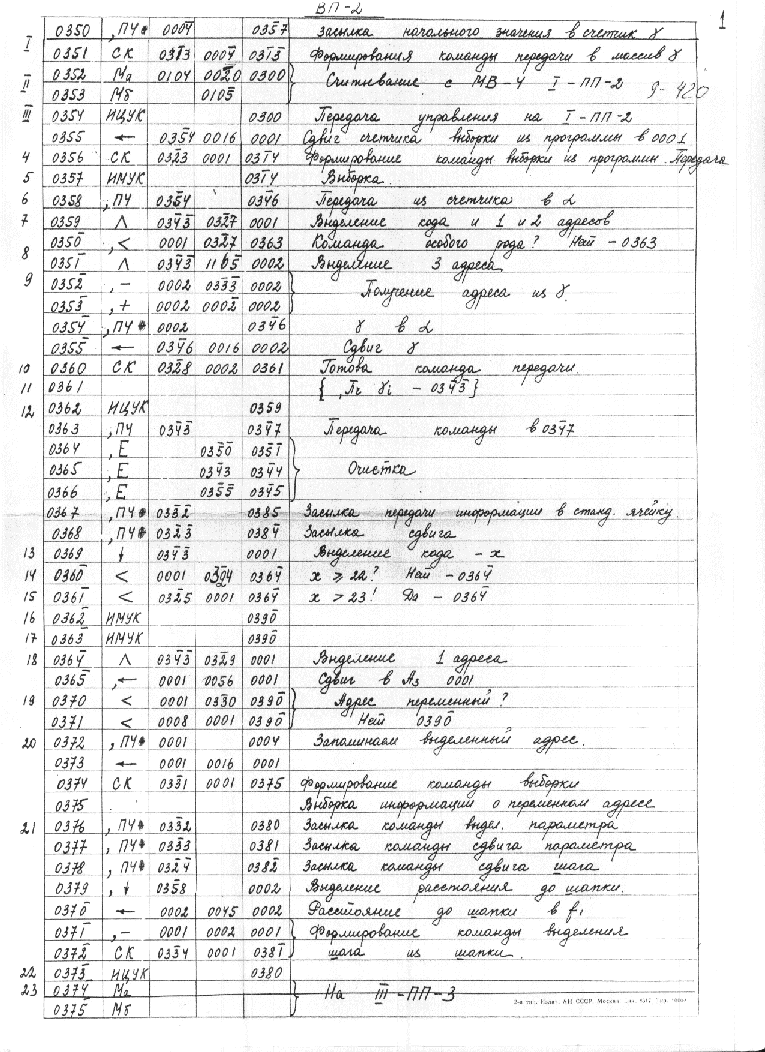 ВП-2
1
0350 ,ПЧ* 0004̅ 0357 Засылка начального значения в счетчик γ
I 0351 СК 03̅13 0004̅ 03̅1̅3 Формирования команды передачи в массив γ
II 0352 Ма 0104 0020 0300 Считывание с МВ-4 I-ПП-2 9-420
0353 Мб 0105
III 0354 ИЦУК 0300 Передача управления на I-ПП-2
0355 ← 0354̅ 0016 0001 Сдвиг счетчика выборки из программы в 0001
4 0356 СК 0323 0001 0314̅ Формирование команды выборки из программы. Передача
5 0357 ИМУК 0314̅ Выборка
6 0358 ,ПЧ 0354̅ 034̅6 Передача из счетчика в α
7 0359 ∧ 034̅3̅ 0327̅ 0001 Выделение кода и 1 и 2 адресов
8 0350̅ ,< 0001 0327̅ 0363 Команда особого рода? Нет - 0363
0351̅ ∧ 034̅3̅ 1105̅ 0002 Выделение 3 адреса
9 0352̅ ,- 0002 033̅3̅ 0002 Получение адреса из γ
0353̅ ,+ 0002 0002̅ 0002
0354̅ ,ПЧ* 0002 034̅6 γ в α
0355̅ ← 034̅6 0016 0002 Сдвиг γ
10 0360 СК 032̅8 0002 0361 Готова команда передачи.
11 0361 {,Пч γi - 034̅3̅}
12 0362 ИЦУК 0359
0363 ,ПЧ 034̅3̅ 034̅7 Передача команды в 034̅7
0364 ,Е 035̅0̅ 0351̅ Очистка
0365 ,Е 034̅3 034̅4
0366 ,Е 035̅5̅ 034̅5
0367 ,ПЧ* 033̅2̅ 0385 Засылка передачи информации в станд. ячейку.
0368 ,ПЧ* 032̅3̅ 0384̅ Засылка сдвига
13 0369 ↓ 034̅3̅ 0001 Выделение кода - x
14 0360̅ < 0001 0364̅ x ⩾ 22? Нет - 0364̅
15 0361̅ < 032̅5 0001 0364̅ x > 23! Да - 0364̅
16 0362̅ ИМУК 0390̅
17 0363̅ ИМУК 0390̅
18 0364̅ ∧ 034̅3̅ 032̅9 0001 Выделение 1 адреса
0365̅ ,← 0001 0056 0001 Сдвиг в А3 0001
19 0370 < 0001 033̅0 0390̅ Адрес переменный?
0371 < 0008 0001 0390̅ Нет 0390
20 0372 ,ПЧ* 0001 0004 Запоминаем выделенный адрес.
0373 ← 0001 0016 0001
0374 СК 033̅1 0001 0375 Формирование команды выборки
0375 Выборка информации о переменном адресе
21 0376 ,ПЧ* 033̅2 0380 Засылка команды выдел. параметра
0377 ,ПЧ* 033̅3 0381 Засылка команды сдвига параметра
0378 ,ПЧ* 032̅4̅ 0382̅ Засылка команды сдвига шага
0379 ,↓ 035̅8 0002 Выделение расстояния до шапки.
0370̅ ← 0002 0045 0002 Расстояние до шапки в f1
0371̅ ,- 0001 0002 0001 Формирование команды выделения
0372̅ СК 033̅4 0001 0381̅ шага из шапки.
22 0373̅ ИЦУК 0380
23 0374̅ Ма На III-ПП-3
0375̅ Мб